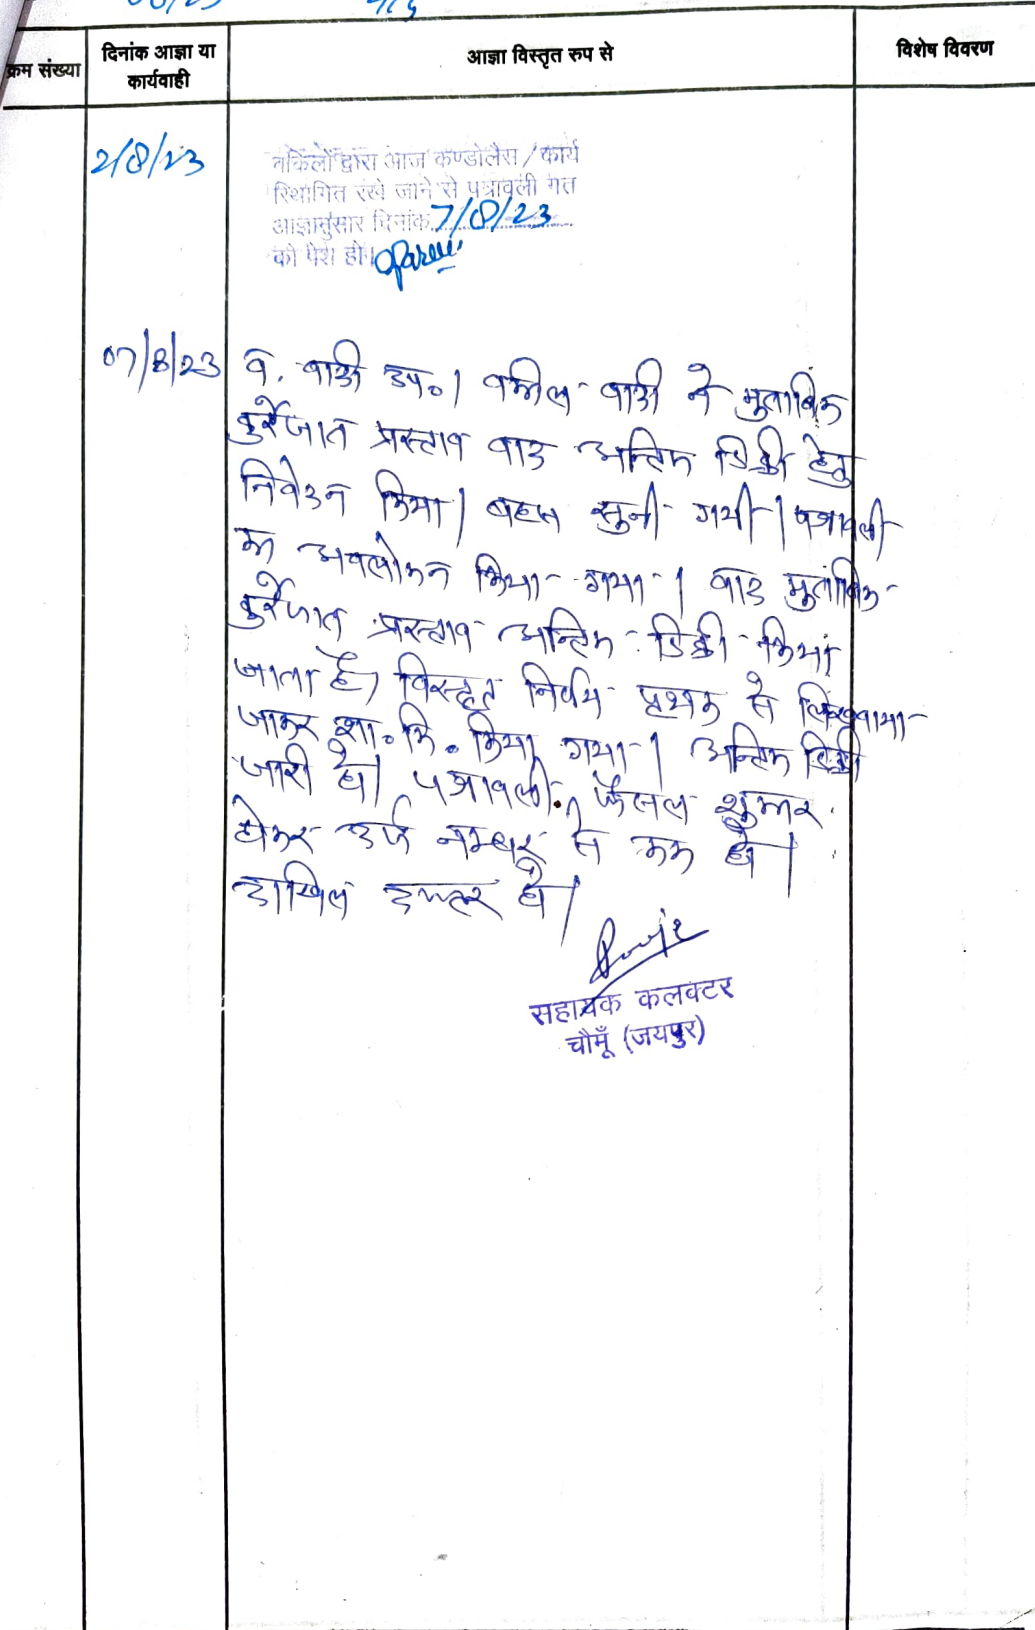 क्रम संख्या
दिनांक आज्ञा या
कार्यवाही
आज्ञा विस्तृत रुप से
विशेष विवरण
2/8/23
वकिलों द्वारा आज कण्डोलैस / कार्य
स्थिागित रखे जाने से पत्रावली गत
आज्ञानुसार दिनांक 7/8/23
को पेश हो।
07/8/23
व. वादी उप०। वकील वादी ने मुताबिक
कुर्रेजात प्रस्ताव वाद अन्तिम डिक्री हेतु
निवेदन किया। बहस सुनी गयी। पत्रावली
का अवलोकन किया गया। वाद मुताबिक
कुर्रेजात प्रस्ताव अन्तिम डिक्री किया
जाता है। विस्तृत निर्णय पृथक से लिखवाया
जाकर शा.मि. किया गया। अन्तिम डिक्री
जारी हो। पत्रावली फैसल शुमार
होकर दर्ज नम्बर से कम हो।
दाखिल दफ्तर हो।
सहायक कलक्टर
चौमूँ (जयपुर)